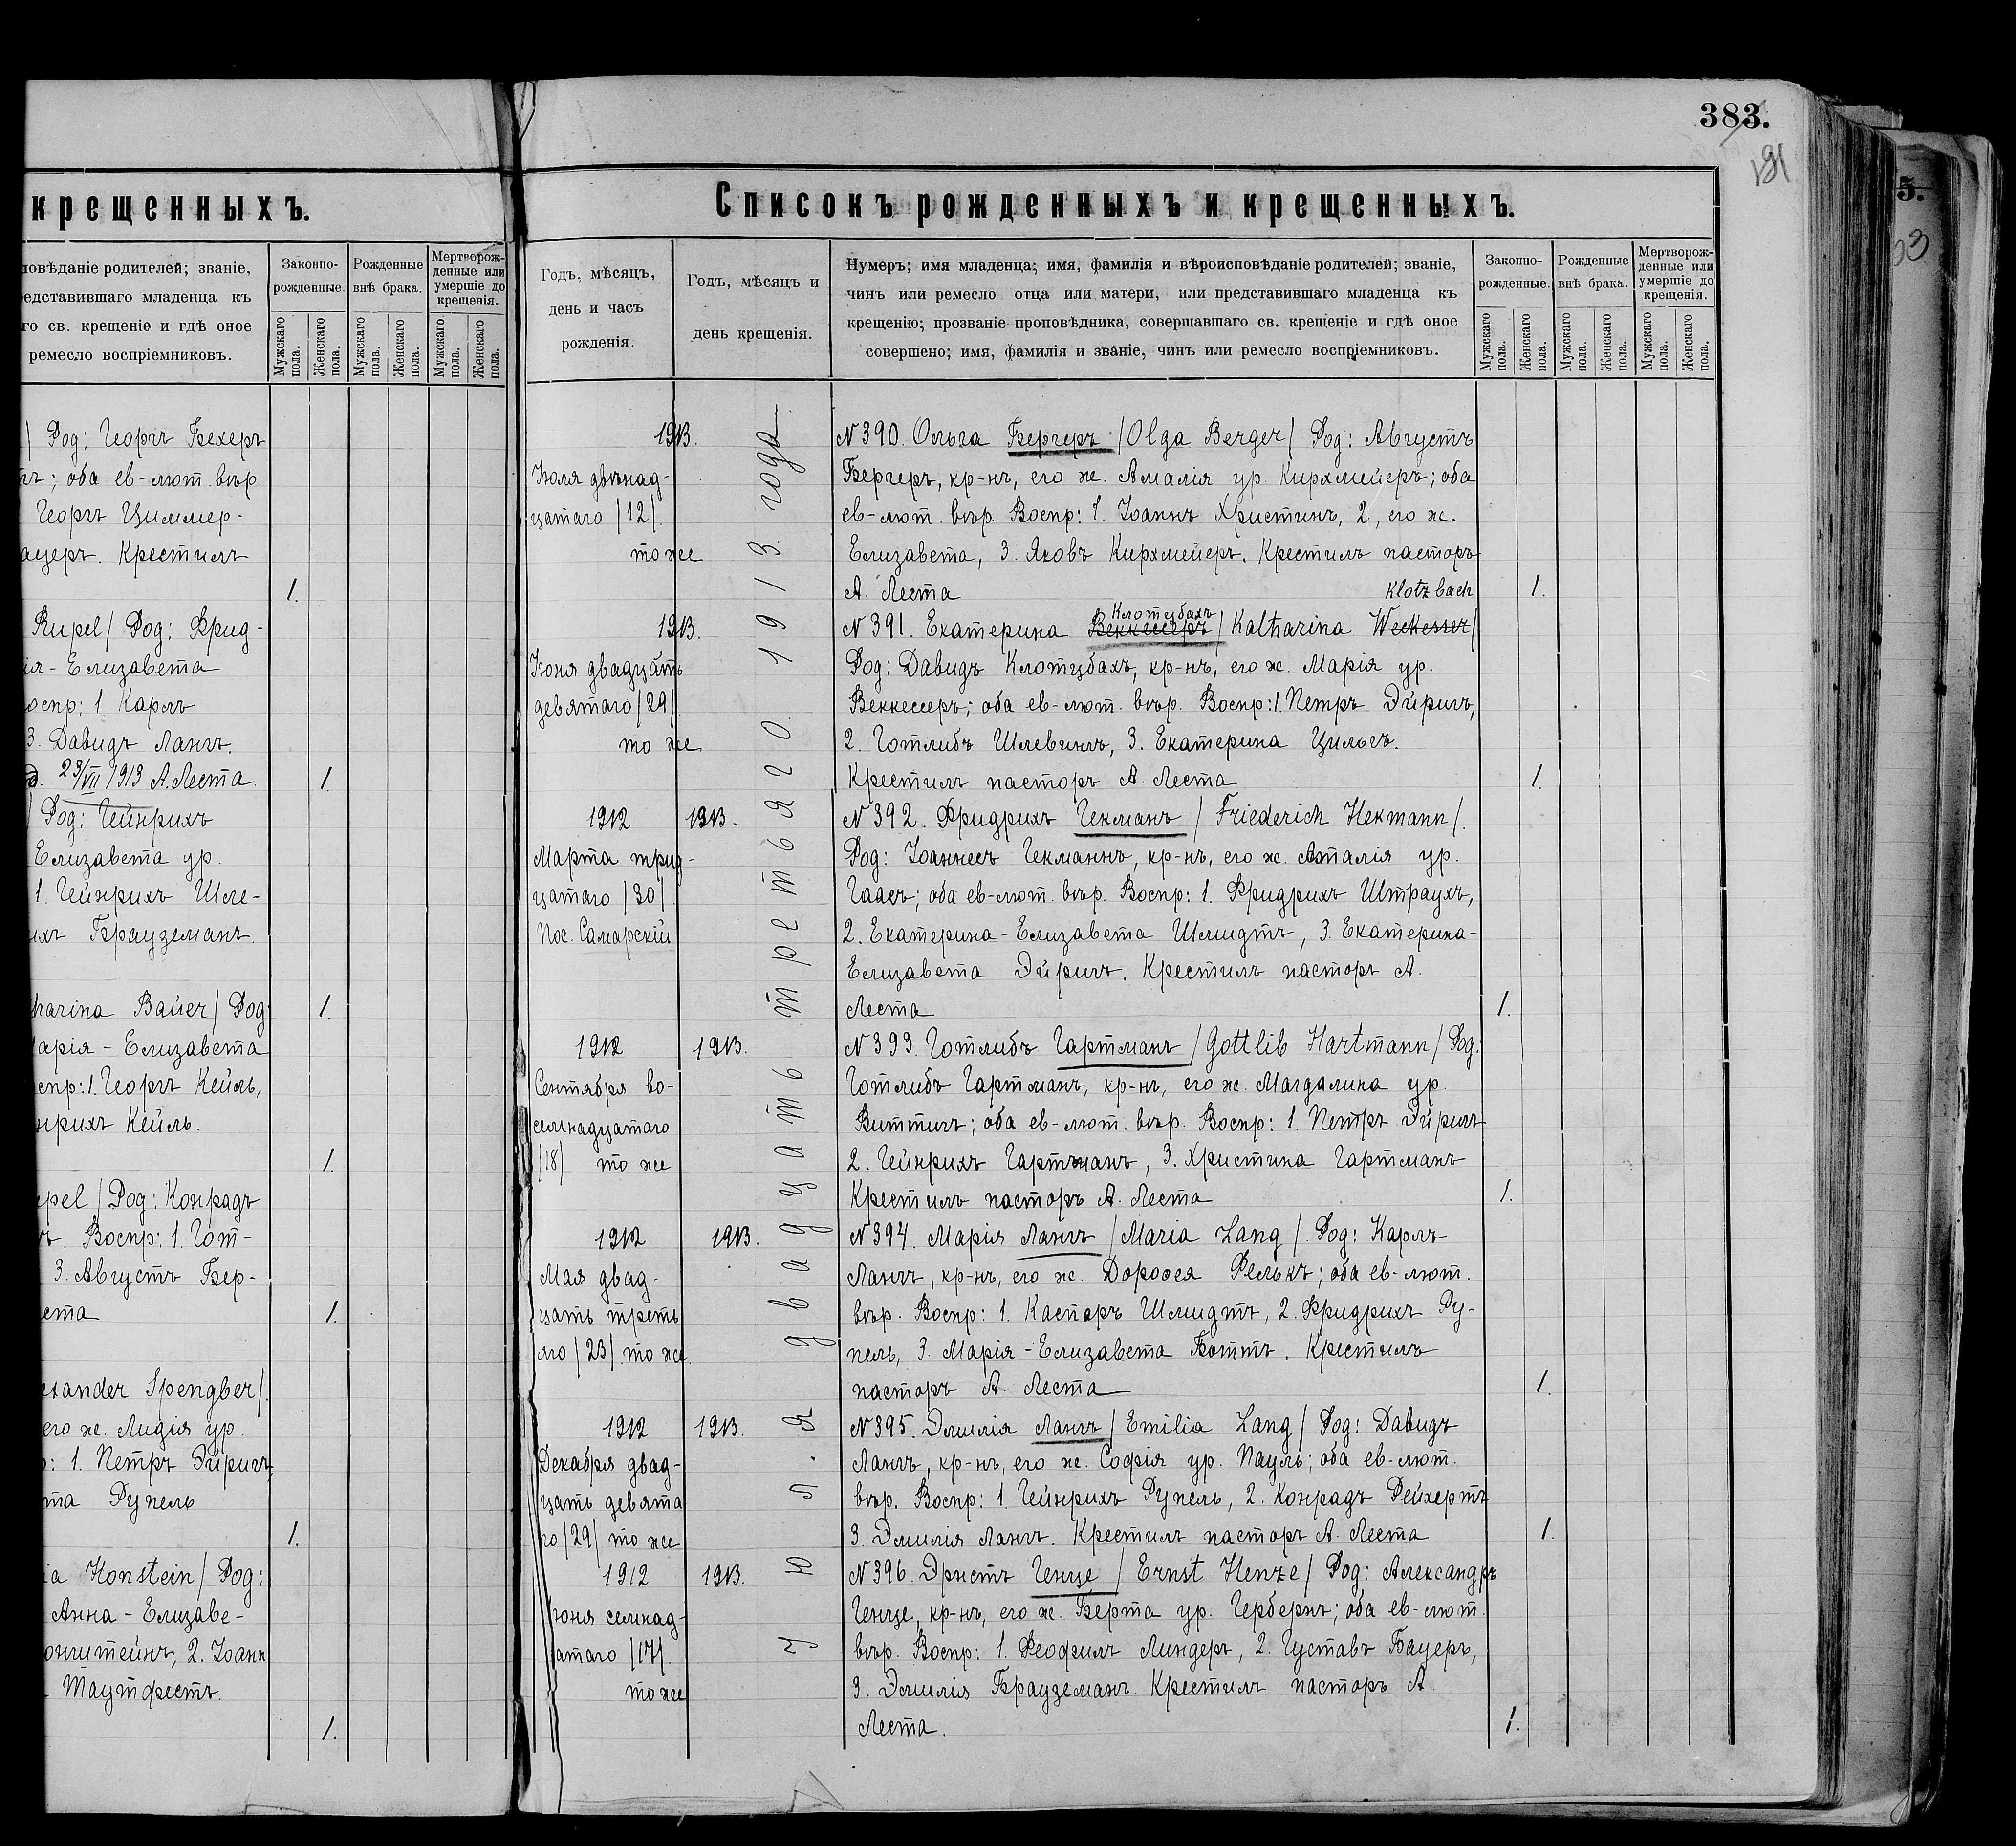 383.
191
5.
крещенныхъ.
повѣданіе родителей; званіе,
редставившаго младенца къ
го св. крещеніе и гдѣ оное
ремесло воспріемниковъ.
Законно-
рожденные.
Рожденные
внѣ брака.
Мертворож-
денные или
умершіе до
крещенія.
Мужскаго пола.
Женскаго пола.
Мужскаго пола.
Женскаго пола.
Мужскаго пола.
Женскаго пола.
/ Род: Георгъ Бехеръ
; оба ев-лют. вѣр.
Георгъ Циммер-
ауеръ. Крестилъ
1.
Rupel / Род: Фрид-
ія-Елизавета
оспр: 1. Карлъ
3. Давидъ Лангъ.
23/VII 1913 А. Леста. 1.
/ Род: Гейнрихъ
Елизавета ур.
1. Гейнрихъ Шле-
ихъ Брауземанъ.
harina Bauer / Род: 1.
арія-Елизавета
оспр: 1. Георгъ Кейль,
нрихъ Кейль.
1.
pel / Род: Конрадъ
ъ. Воспр: 1. Гот-
3. Августъ Бер-
еста 1.
exander Spengber /.
его ж. Лидія ур.
: 1. Петръ Эйригъ,
та Рупель
1.
ia Honstein / Род:
Анна-Елизаве-
онштейнъ, 2. Іоанн
Таутфестъ.
1.
Списокъ рожденныхъ и крещенныхъ.
Годъ, мѣсяцъ,
день и часъ
рожденія.
Годъ, мѣсяцъ и
день крещенія.
Нумеръ; имя младенца; имя, фамилія и вѣроисповѣданіе родителей; званіе,
чинъ или ремесло отца или матери, или представившаго младенца къ
крещенію; прозваніе проповѣдника, совершавшаго св. крещеніе и гдѣ оное
совершено; имя, фамилія и званіе, чинъ или ремесло воспріемниковъ.
Законно-
рожденные.
Рожденные
внѣ брака.
Мертворож-
денные или
умершіе до
крещенія.
Мужскаго пола.
Женскаго пола.
Мужскаго пола.
Женскаго пола.
Мужскаго пола.
Женскаго пола.
Іюля двадцать третьяго 20 1913 года
1913.
Іюля двѣнад-
цатаго /12/.
тоже
№ 390. Ольга Бергеръ /Olga Berger/ Род: Августъ
Бергеръ, кр-нъ, его ж. Амалія ур. Кирхмейеръ; оба
ев-лют. вѣр. Воспр: 1. Іоаннъ Христинъ, 2, его ж.
Елизавета, 3. Яковъ Кирхмейеръ. Крестилъ пасторъ
А. Леста 1.
1913.
Іюня двадцать
девятаго /29/.
то же
Клотцбахъ Klotzbach
№ 391. Екатерина Веккессеръ /Katharina Weckesser/
Род: Давидъ Клотцбахъ, кр-нъ, его ж. Марія ур.
Веккессеръ; оба ев-лют. вѣр. Воспр: 1. Петръ Эйригъ,
2. Готлибъ Шлевингъ, 3. Екатерина Цильгъ.
Крестилъ пасторъ А. Леста 1.
1912 1913.
Марта трид-
цатаго /30/.
Пос. Самарскій
№ 392. Фридрихъ Гекманъ / Friederich Hekmann /.
Род: Іоаннесъ Гекманнъ, кр-нъ, его ж. Аталія ур.
Гаасъ; оба ев-лют. вѣр. Воспр: 1. Фридрихъ Штраухъ,
2. Екатерина-Елизавета Шмидтъ, 3. Екатерина-
Елизавета Эйригъ. Крестилъ пасторъ А.
Леста 1.
1912 1913.
Сентября во-
семнадцатаго
/18/ то же
№ 393. Готлибъ Гартманъ /Gottlib Hartmann/ Род.
Готлибъ Гартманъ, кр-нъ, его ж. Магдалина ур.
Виттигъ; оба ев-лют. вѣр. Воспр: 1. Петръ Эйригъ
2. Гейнрихъ Гартманъ, 3. Христина Гартманъ
Крестилъ пасторъ А. Леста 1.
1912 1913.
Мая двад-
цать треть
яго /23/ то же.
№ 394. Марія Лангъ /Maria Lang/. Род: Карлъ
Лангъ, кр-нъ, его ж. Доротея Релькъ; оба ев-лют.
вѣр. Воспр: 1. Касторъ Шмидтъ, 2. Фридрихъ Ру-
пель, 3. Марія-Елизавета Боттъ. Крестилъ
пасторъ А. Леста 1.
1912 1913.
Декабря двад-
цать девята
го /29/ то же
№ 395. Эмилія Лангъ /Emilia Lang/ Род: Давидъ
Лангъ, кр-нъ, его ж. Софія ур. Пауль; оба ев-лют.
вѣр. Воспр: 1. Гейнрихъ Рупель, 2. Конрадъ Рейхертъ
3. Эмилія Лангъ. Крестилъ пасторъ А. Леста 1.
1912 1913.
Іюня семнад-
цатаго /17/.
тоже
№ 396. Эрнстъ Генце / Ernst Henze / Род: Александръ
Генце, кр-нъ, его ж. Берта ур. Герберъ; оба ев-лют.
вѣр. Воспр: 1. Феофилъ Линдеръ, 2. Густавъ Бауеръ,
3. Эмилія Брауземанъ. Крестилъ пасторъ А.
Леста. 1.